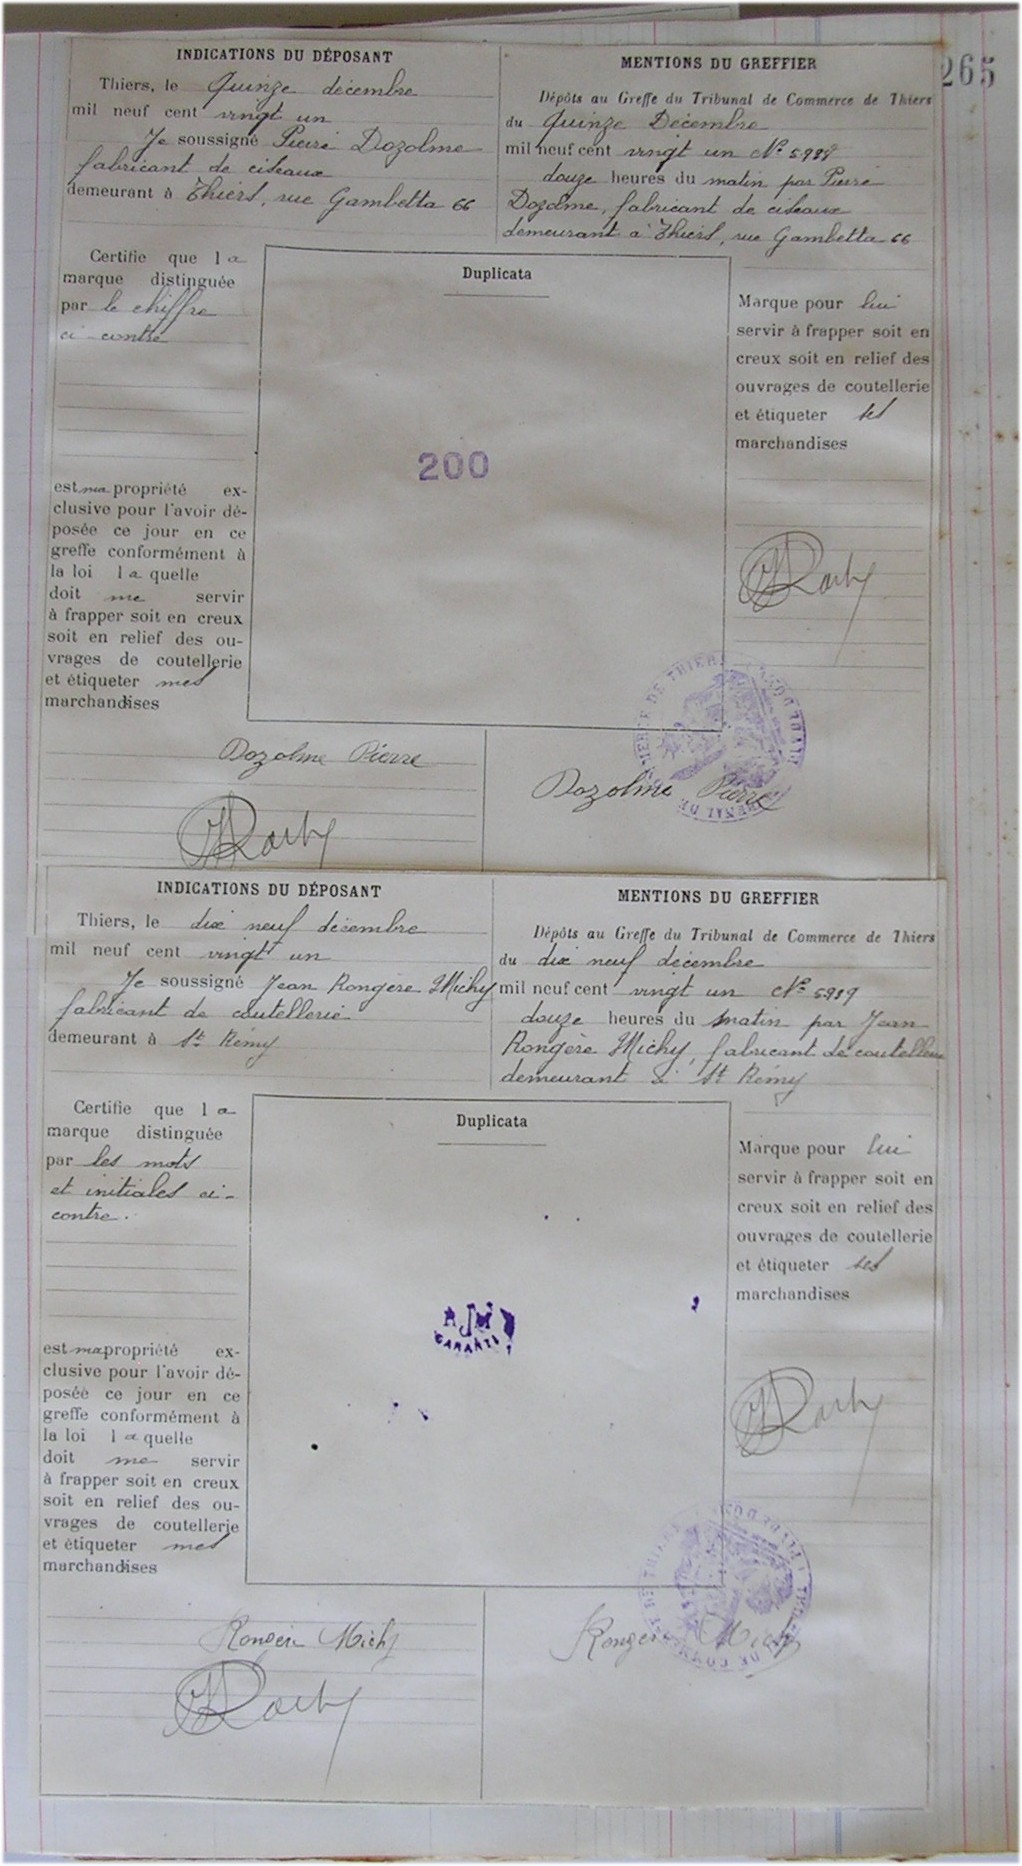 265
INDICATIONS DU DÉPOSANT
Thiers, le Quinze décembre
mil neuf cent vingt un
Je soussigné Pierre Dozolme
fabricant de ciseaux
demeurant à Thiers, rue Gambetta 66
MENTIONS DU GREFFIER
Dépôts au Greffe du Tribunal de Commerce de Thiers
du Quinze Décembre
mil neuf cent vingt un No
douze heures du matin par Pierre
Dozolme, fabricant de ciseaux
demeurant à Thiers, rue Gambetta 66
Certifie que la
marque distinguée
par le chiffre
ci-contre
est ma propriété ex-
clusive pour l'avoir dé-
posée ce jour en ce
greffe conformément à
la loi la quelle
doit me servir
à frapper soit en creux
soit en relief des ou-
vrages de coutellerie
et étiqueter mes
marchandises
Duplicata
200
Marque pour lui
servir à frapper soit en
creux soit en relief des
ouvrages de coutellerie
et étiqueter ses
marchandises
Dozolme Pierre
Dozolme Pierre
INDICATIONS DU DÉPOSANT
Thiers, le dix neuf décembre
mil neuf cent vingt un
Je soussigné Jean Rongère Michy
fabricant de coutellerie
demeurant à St Rémy
MENTIONS DU GREFFIER
Dépôts au Greffe du Tribunal de Commerce de Thiers
du dix neuf décembre
mil neuf cent vingt un No
douze heures du matin par Jean
Rongère Michy, fabricant de coutellerie
demeurant à St Rémy
Certifie que la
marque distinguée
par les mots
et initiales ci-
contre.
est ma propriété ex-
clusive pour l'avoir dé-
posée ce jour en ce
greffe conformément à
la loi la quelle
doit me servir
à frapper soit en creux
soit en relief des ou-
vrages de coutellerie
et étiqueter mes
marchandises
Duplicata
GARANTI
Marque pour lui
servir à frapper soit en
creux soit en relief des
ouvrages de coutellerie
et étiqueter ses
marchandises
Rongère Michy
Rongère Michy